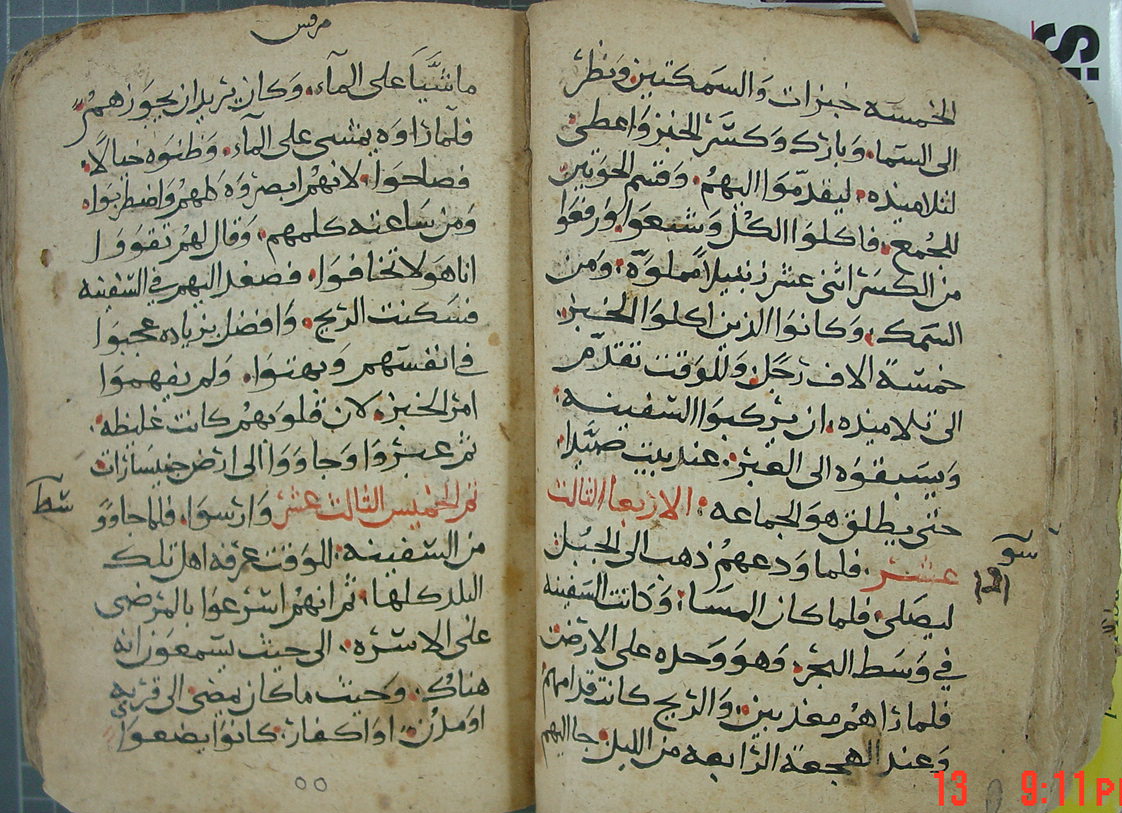 الخمسه خبزات والسمكتين ونظر
الى السما. وبارك وكسر الخبز واعطى
لتلاميذه. ليقدموا اليهم. وقسم الحوتين
للجمع. فاكلوا الكل وشبعوا ورفعوا
من الكسر اثنى عشر زنبيلا مملوة. ومن
السمك. وكانوا الذين اكلوا الخبز.
خمسة الاف رجل. وللوقت تقدم
الى تلاميذه. ان يركبوا السفينه.
ويسبقوه الى العبر. عند بيت صيدا.
حتى يطلق هو الجماعه. الاربعا الثالث
عشر. فلما ودعهم ذهب الى الجبل
ليصلى. فلما كان المسا. وكانت السفينه
في وسط البحر. وهو وحده على الارض
فلما راهم معذبين. والريح كانت قدامهم
وعند الهجعة الرابعه من الليل. جا اليهم
مرقس
ماشيا على المآء. وكان يريد ان يجوزهم.
فلما راوه يمشى على المآء. وظنوه خيالا.
فصاحوا. لانهم ابصروه كلهم واضطربوا.
ومن ساعته كلمهم. وقال لهم تقووا
انا هو لا تخافوا. فصعد اليهم في السفينه
فسكنت الريح. وافضل بزياده عجبوا
في انفسهم وبهتوا. ولم يفهموا
امر الخبز. لان قلوبهم كانت غليظه.
ثم عبروا وجاووا الى ارض جنيسارات
ثم الخميس الثالث عشر وارسوا. فلما جاوو
من السفينه. للوقت عرفه اهل تلك
البلد كلها. ثم انهم اسرعوا بالمرضى
على الاسره. الى حيث يسمعون انه
هناك. وحيث ما كان يمضى الى قريه
او مدن. او اكفار. كانوا يضعوا
13 9:11